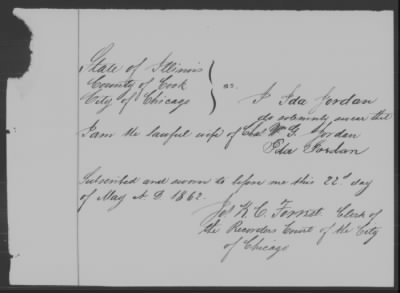 State of Illinois
County of Cook
City of Chicago } ss.
I Ida Jordan
do solemnly swear that
I am the lawful wife of Chas W. G. Jordan
Ida Jordan
Subscribed and sworn to before me this 22d. day
of May A D 1862.
Jos K. C. Forrest Clerk of
the Recorders Court of the City
of Chicago